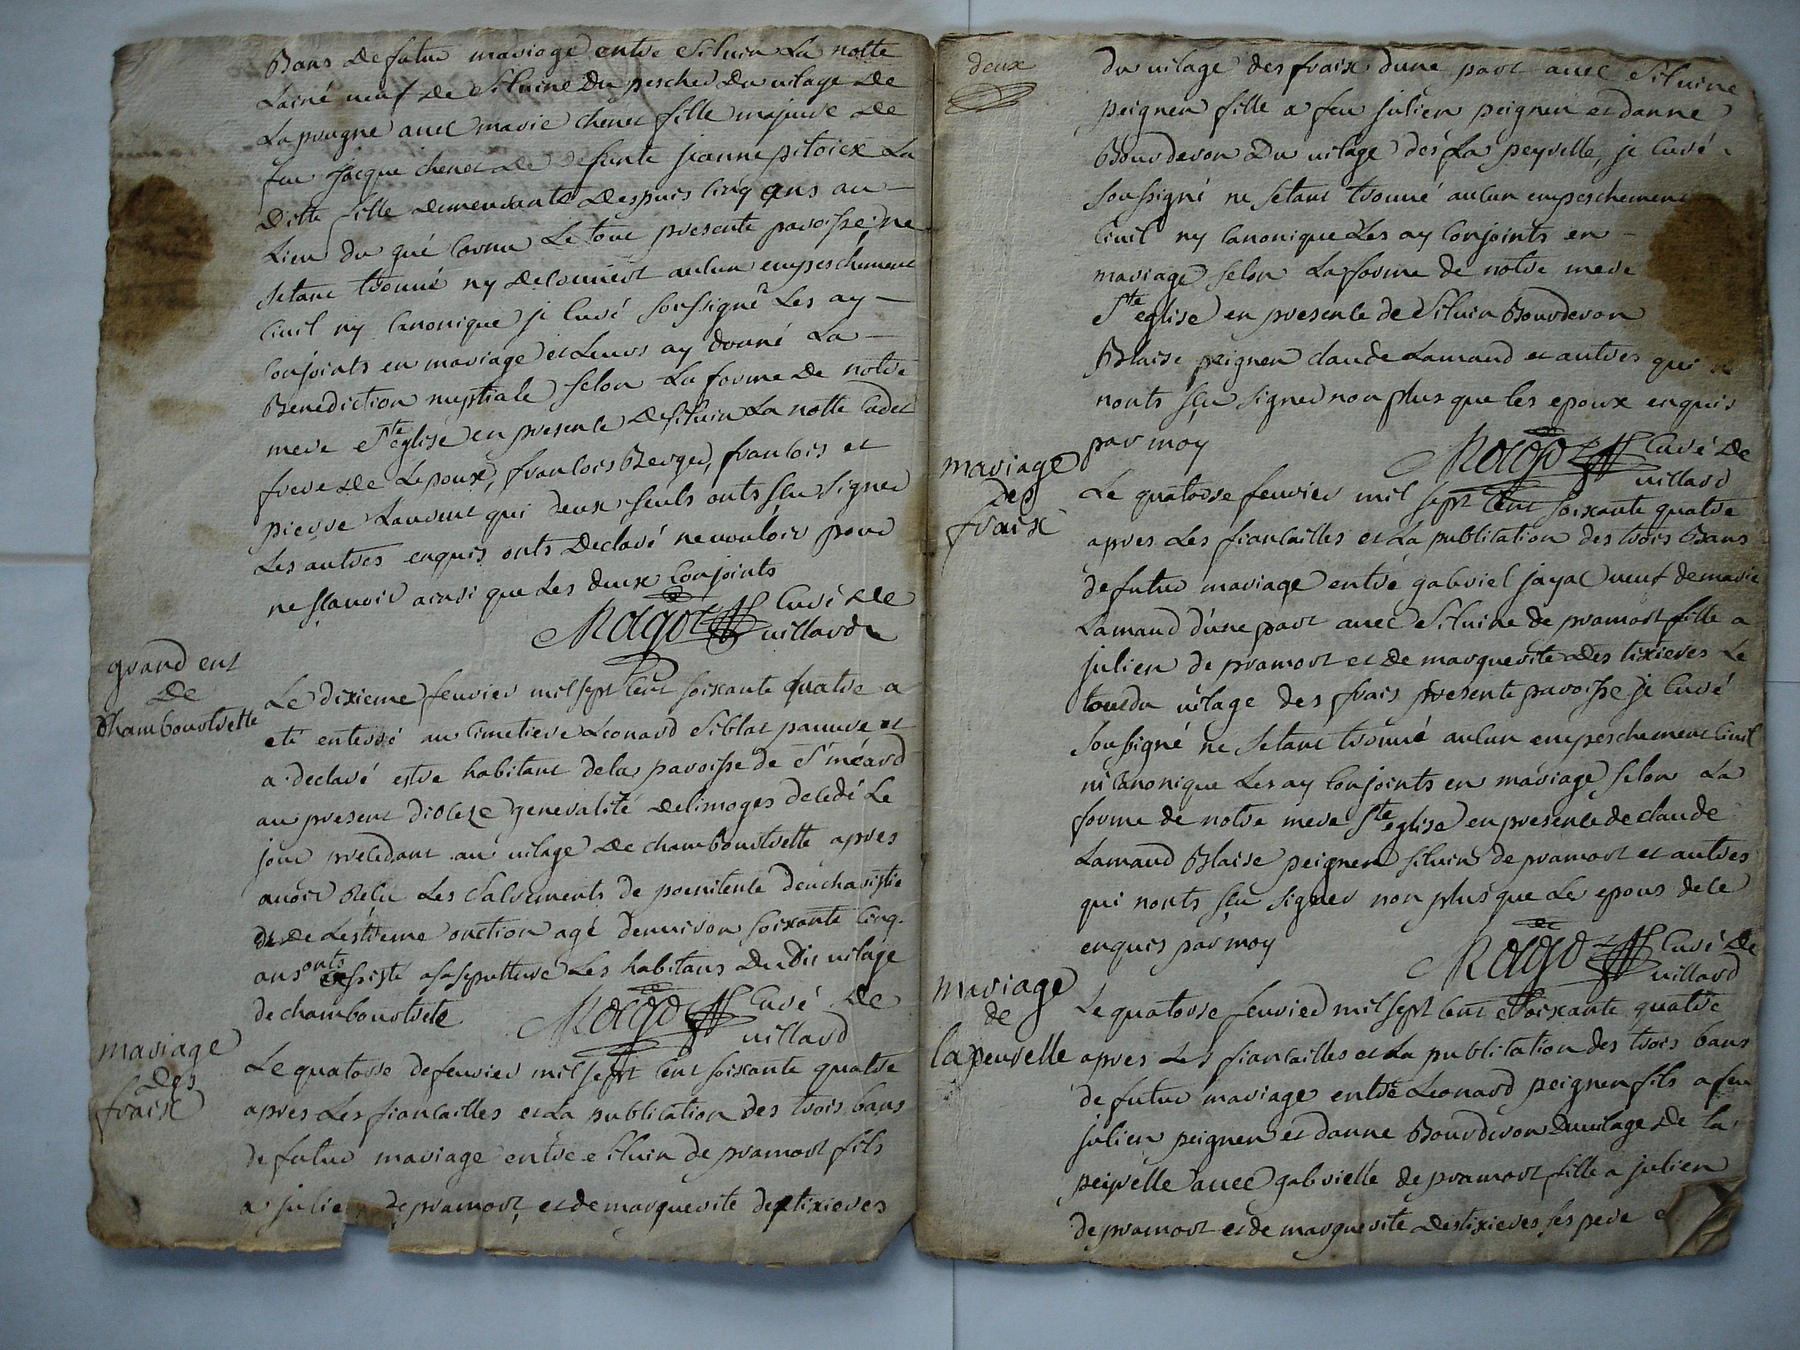 Bans de futur mariage entre Siluin La notte
Lainé veuf de Siluine du pescher du vilage de
La prugne avec marie chenet fille majeure de
feu jacque chenet de defunte jeanne pitoiex La
ditte fille demeurante despuis cinq ans au
Lieu du gué cornu Le tout presente paroisse ne
setant trouvé ny decouvert aucun empeschement
Civil ny Canonique je Curé soussigné Les ay
Conjoints en mariage et Leurs ay donné La
Benediction nuptiale selon La forme de notre
mere Ste eglise en presence de Siluin La notte Cadet
frere de L epoux, francois Berger, francois et
pierre Laurent qui deux seuls onts sçu signer
Les autres enquis onts declaré ne vouloir pour
ne sçavoir ainsi que Les deux Conjoints
Ragot Curé de
villard
grand ent
de
Chambourtrette
Le dixieme feuvrier mil sept cent soixante quatre a
eté enterré au cimetiere Léonard Siblot pauvre et
a declaré estre habitant de la paroisse de St méard
au present diocese generalité de limoges decedé Le
jour precedant au vilage de chambourtrette apres
avoir Recu Les Sacrements de poenitence deucharistie
de Lextreme onction agé denviron soixante cinq
ans onts assisté a sa sepulture Les habitans du dit vilage
de chambourtrete
Ragot Curé de
villard
mariage
des
fraix
Le quatorse de feuvrier mil sept cent soixante quatre
apres Les fiancailles et La publication des trois bans
de futur mariage entre Siluin de pramort fils
a julien de pramort et de marguerite destixieres
deux
du vilage des fraix dune part avec Siluine
peignen fille a feu julien peignen et danne
Bourderon du vilage des La peyrelle, je Curé
soussigné ne setant trouvé aucun empeschement
Civil ny Canonique Les ay Conjoints en
mariage selon La forme de notre mere
Ste eglise en presence de Siluin Bourderon
Blaise peignen claude Lamaud et autres qui
nonts sçu signer non plus que les epoux enquis
par moy
Ragot Curé de
villard
mariage
des
fraix
Le quatorse feuvrier mil sept cent soixante quatre
apres Les fiancailles et La publication des trois Bans
de futur mariage entre gabriel jayac veuf de marie
Lamaud d'une part avec Siluine de pramort fille a
julien de pramort et de marguerite des tixieres Le
tout du vilage des frais presente paroisse je Curé
soussigné ne setant trouvé aucun empeschement Civil
ni Canonique Les ay Conjoints en mariage selon La
forme de notre mere Ste eglise en presence de claude
Lamaud Blaise peignen siluin de pramort et autres
qui nonts sçu signer non plus que Les epoux de ce
enquis par moy
Ragot Curé de
villard
mariage
de
la peurelle
Le quatorse feuvrier mil sept cent soixante quatre
apres Les fiancailles et La publication des trois bans
de futur mariage entre Leonard peignen fils a feu
julien peignen et danne Bourderon du vilage de la
peyrelle avec gabrielle de pramort fille a julien
de pramort et de marguerite destixieres ses pere